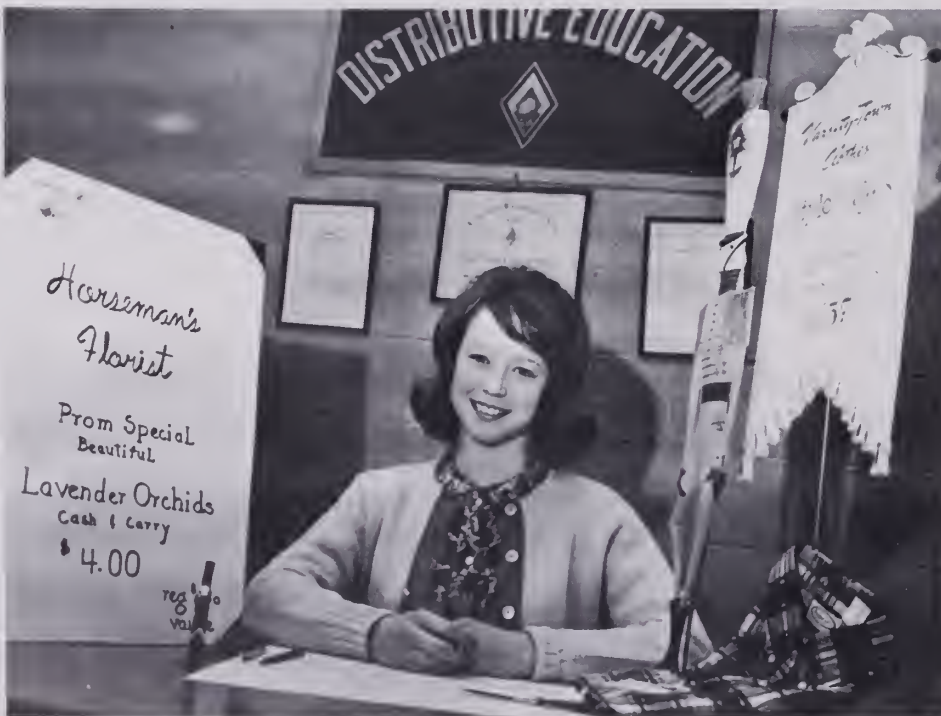 DISTRIBUTIVE EDUCATION
Horseman's
Florist
Prom Special
Beautiful
Lavender Orchids
Cash & Carry
$4.00
reg
Varsity-Town
Clothes